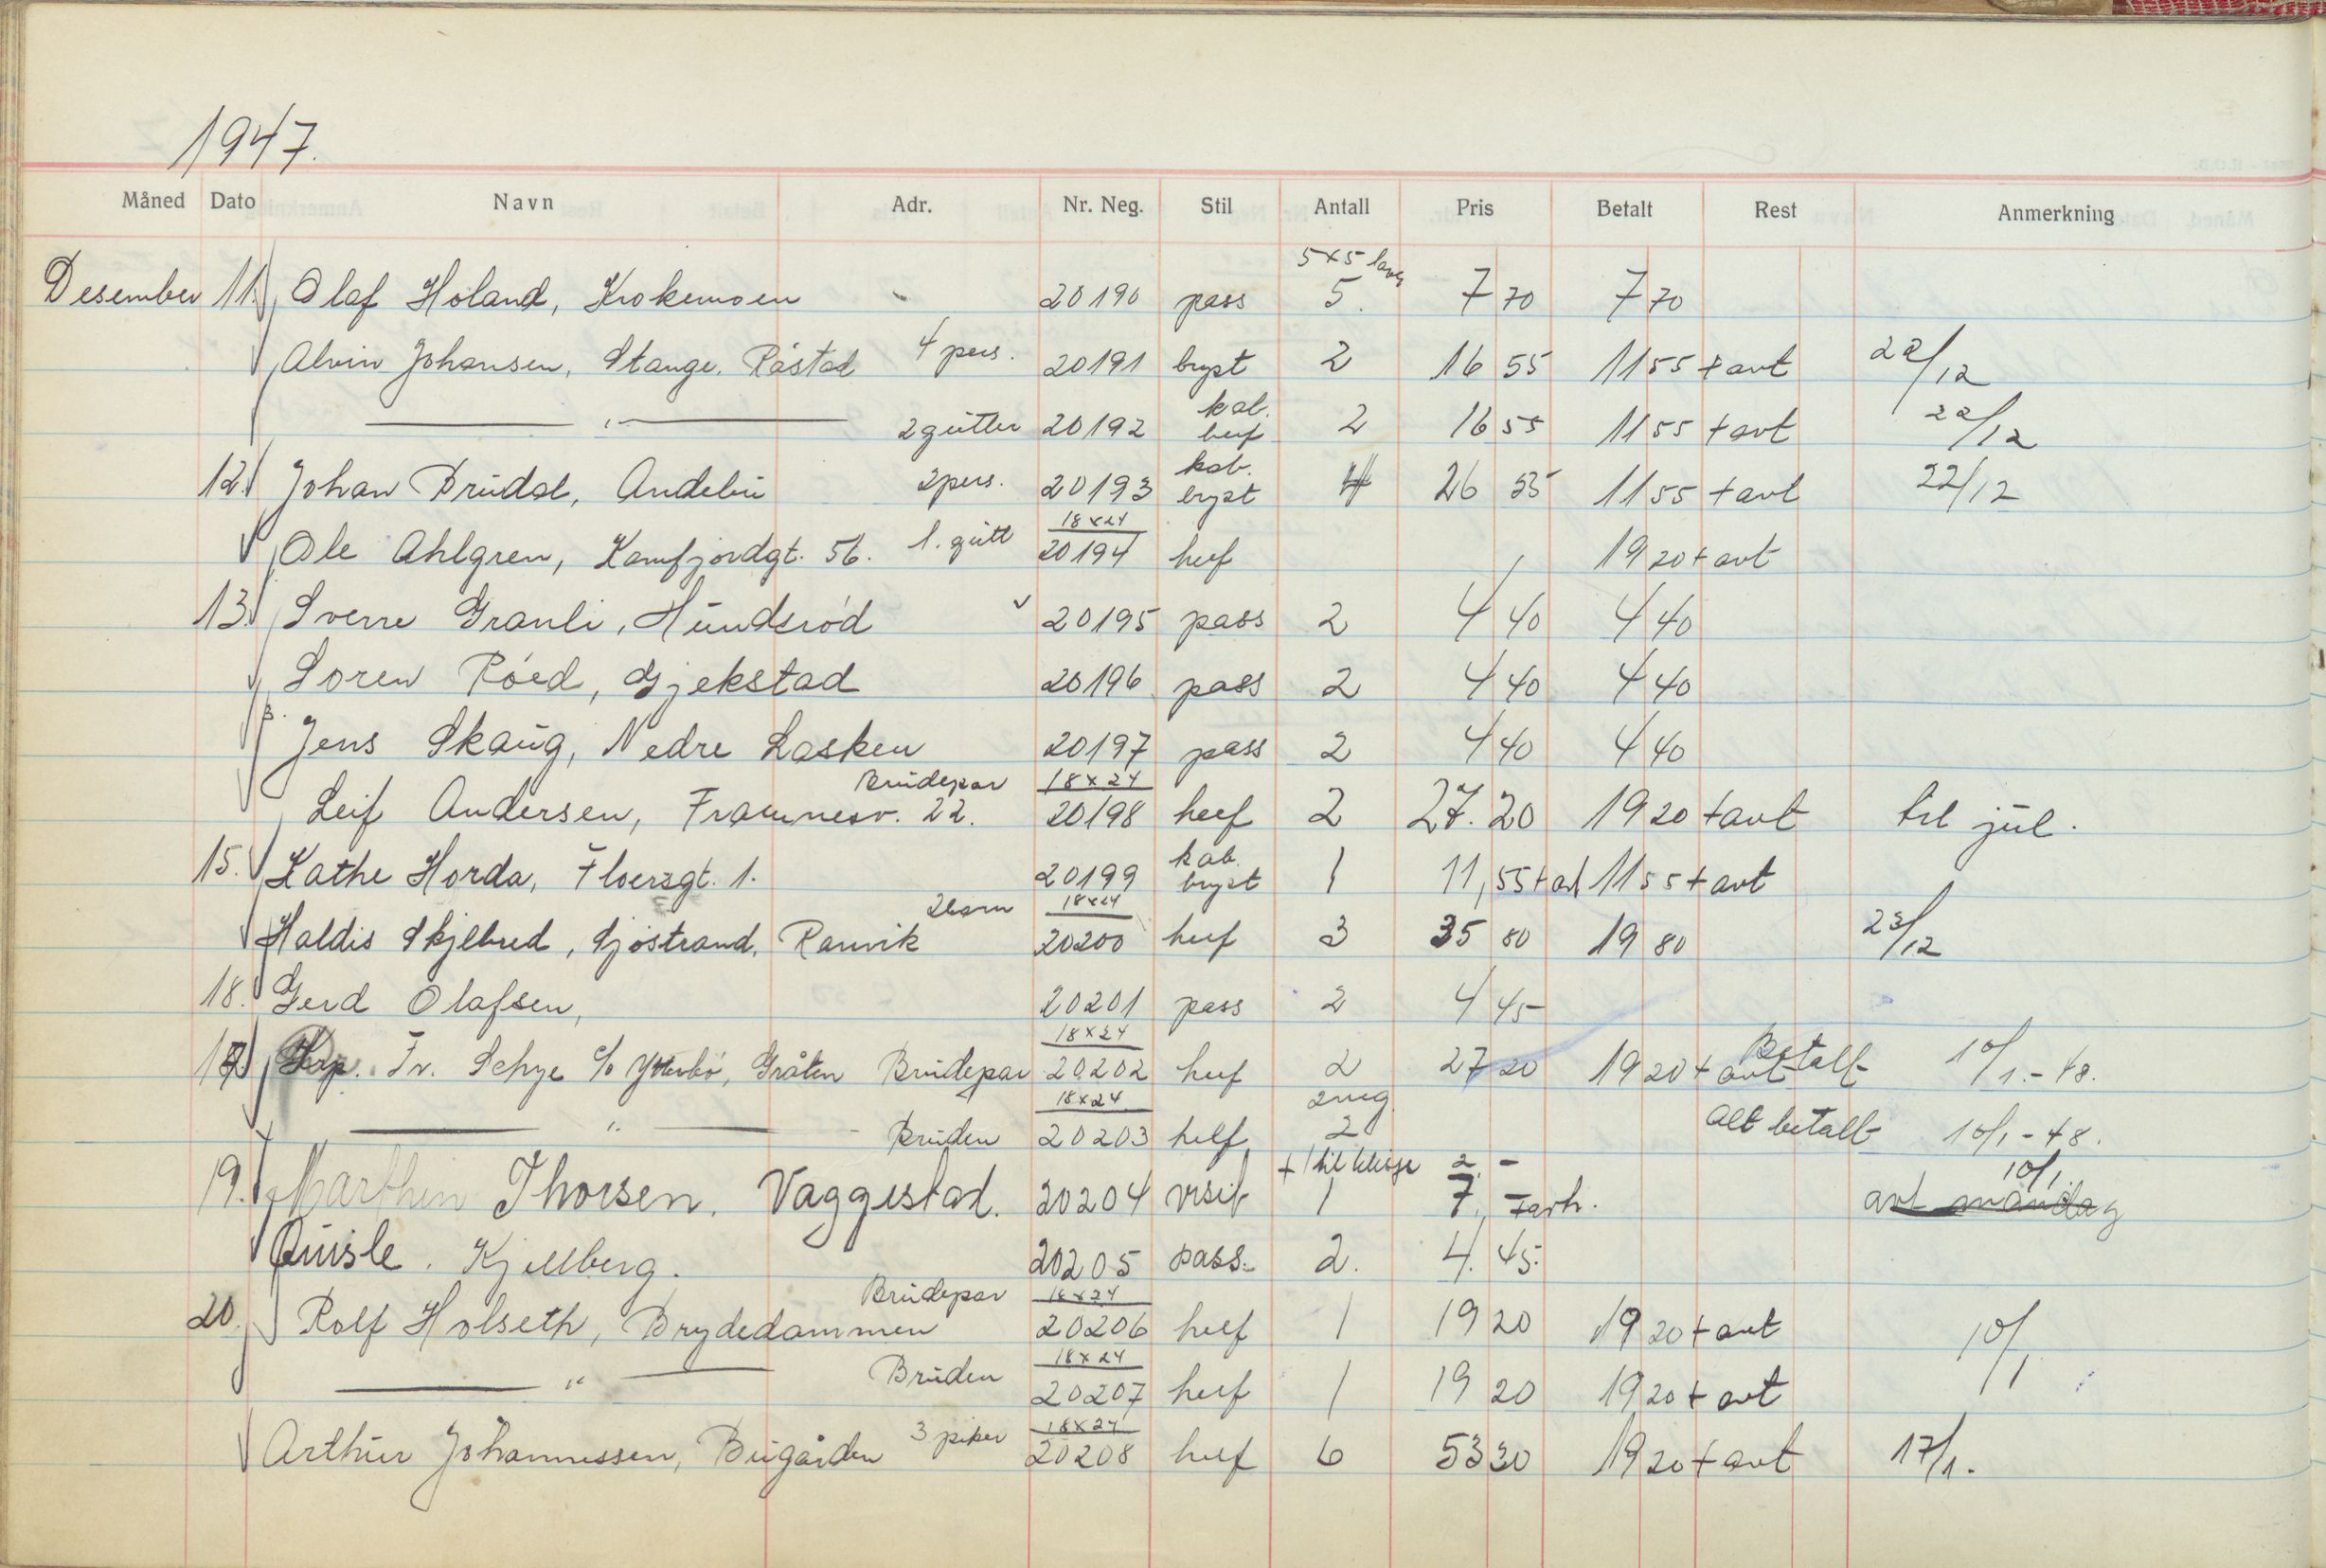 1947.
Måned Dato Navn Adr. Nr. Neg. Stil Antall Pris Betalt Rest Anmerkning
5x5
Desember 11. Olaf Holand, Krokemoen 20190 pass 5. 7 70 7 70
Alvin Johansen, Stange, Råstad 4 pers. 20191 bryst 2 16 55 11 55 + avt 22/12
kab.
" 2 gutter 20192 2 16 55 11 55 + avt 22/12
kab.
12. Johan Brudal, Andebu 2 pers. 20193 bryst 4 26 55 11 55 + avt 22/12
18x24
Ole Ahlgren, Kamfjordgt. 56. 1. gutt 20194 helf 19 20 + avt
13. Sverre Granli, Hundsrød 20195 pass 2 4 40 4 40
Soren Röed, Gjekstad 20196 pass 2 4 40 4 40
Jens Skaug, Nedre Lasken 20197 pass 2 4 40 4 40
Brudepar 18x24
Leif Andersen, Framnesv. 22. 20198 helf 2 27. 20 19 20 + avt til jul.
kab.
15. Kathe Horda, Floersgt. 1. 20199 bryst 1 11, 55 + avt 11 55 + avt
2 barn 18x24
Haldis Skjelbred, Sjøstrand, Ranvik 20200 helf 3 35 80 19 80 23/12
18. Gerd Olafsen, 20201 pass 2 4 45
18x24
Fr. Schye c/o Ytterbö, Gråten Brudepar 20202 helf 2 27 20 19 20 + avt Betalt 10/1.-48.
18x24 2 neg.
" Bruden 20203 helf 2 alt betalt 10/1-48.
+ 1 til 2. - 10/1.
19. Marthin Thorsen. Vaggestad. 20204 visit 1 7. avt mandag
Quisle. Kjellberg. 20205 pass. 2. 4. 45.
Brudepar 18x24
20. Rolf Holseth, Brydedammen 20206 helf 1 19 20 19 20 + avt 10/1
18x24
" Bruden 20207 helf 1 19 20 19 20 + avt
3 piker 18x24
Arthur Johannessen, Bugården 20208 helf 6 53 30 19 20 + avt 17/1.